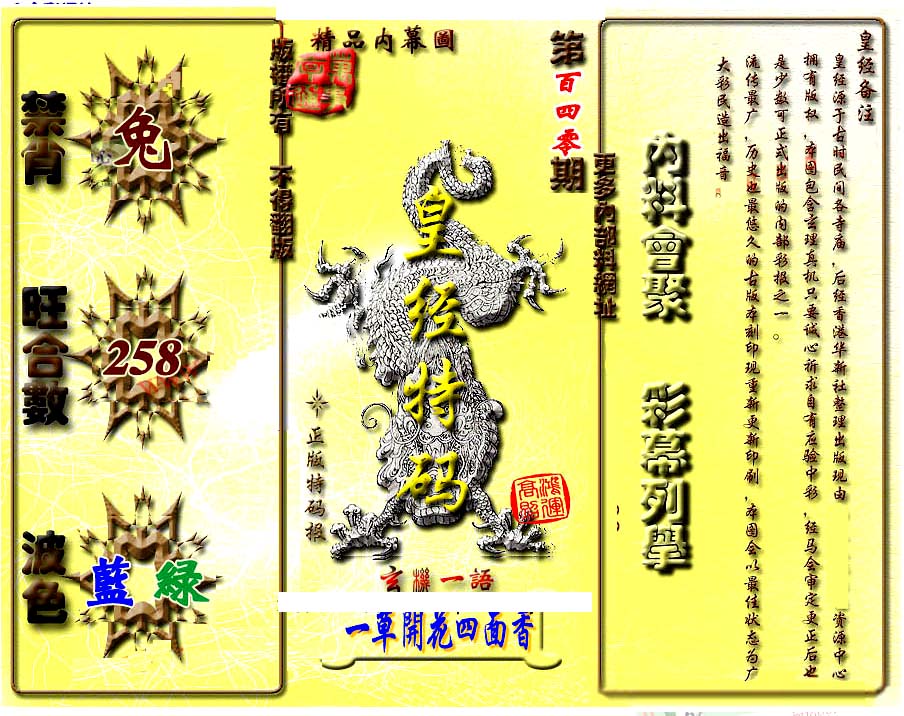 禁肖
兔
旺合數
258
波色
藍 綠
版權所有 不得翻版
精品内幕圖
第百四零期
皇经特码
正版特码报
鴻運高照
玄機一語
一草開花四面香
更多內部料網址
内料會聚 彩幕列舉
皇经备注
皇经源于古时民间各寺庙，后经香港华新社整理出版现由 资源中心
拥有版权，本图包含玄理真机只要诚心祈求自有应验中彩，经马会审定更正后也
是少数可正式出版的内部彩报之一。
流传最广，历史也最悠久的古版本刻印现重新更新印刷，本图会以最佳状态为广
大彩民造出福音。